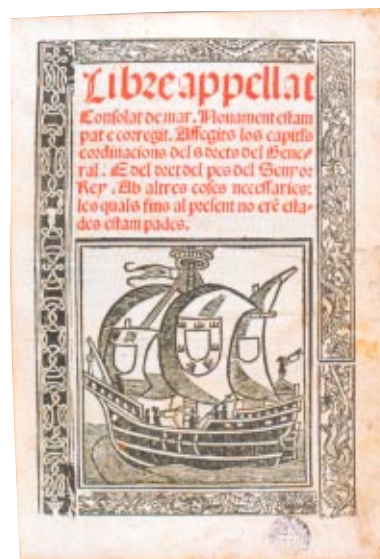 Libre appellat
Consolat de mar. Nouament estam
pat e corregit. Affegits los capitols
e ordinacions dels drets del Gene-
ral. E del dret del pes del Senyor
Rey. Ab altres coses necessaries:
les quals fins al present no erẽ esta-
des estampades.